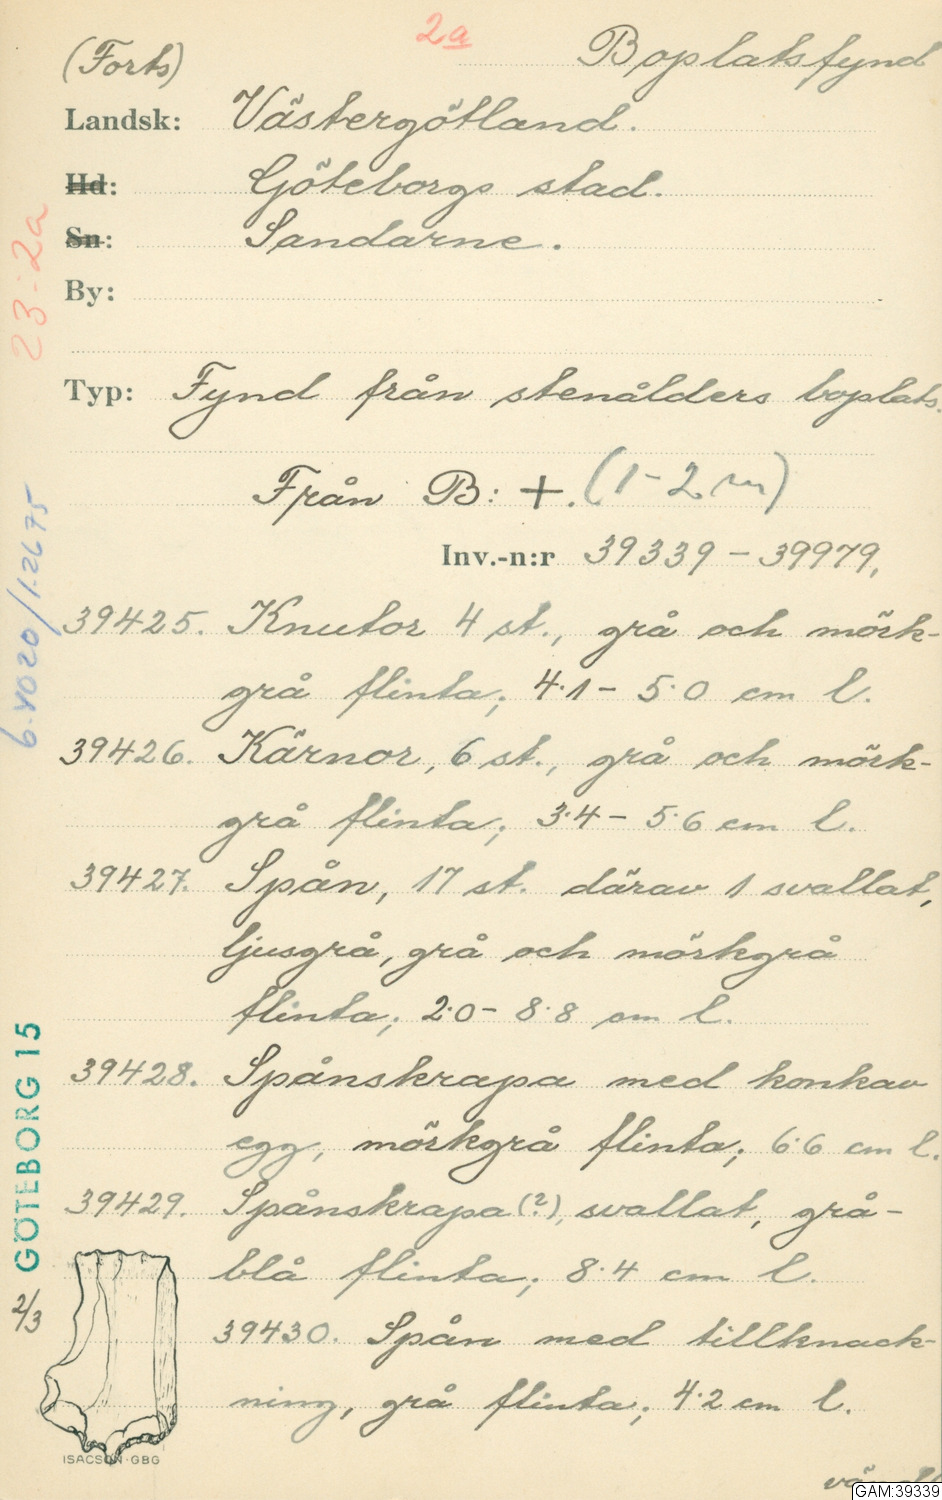 2a
(Forts) Boplatsfynd
Landsk: Västergötland.
Hd: Göteborgs stad.
Sn: Sandarne.
By:
Typ: Fynd från stenålders boplats.
Från B: +. (1-2 m)
Inv.-n:r 39339 - 39979.
39425. Knutor 4 st., grå och mörk-
grå flinta; 4·1 - 5·0 cm l.
39426. Kärnor, 6 st., grå och mörk-
grå flinta; 3·4 - 5·6 cm l.
39427. Spån, 17 st. därav 1 svallat,
ljusgrå, grå och mörkgrå
flinta; 2·0 - 8·8 cm l.
39428. Spånskrapa med konkav
egg, mörkgrå flinta; 6·6 cm l.
39429. Spånskrapa (?), svallat, grå-
blå flinta; 8·4 cm l.
39430. Spån med tillknack-
ning, grå flinta; 4·2 cm l.
23:2a
GÖTEBORG 15
2/3
ISACSON·GBG
GAM:39339